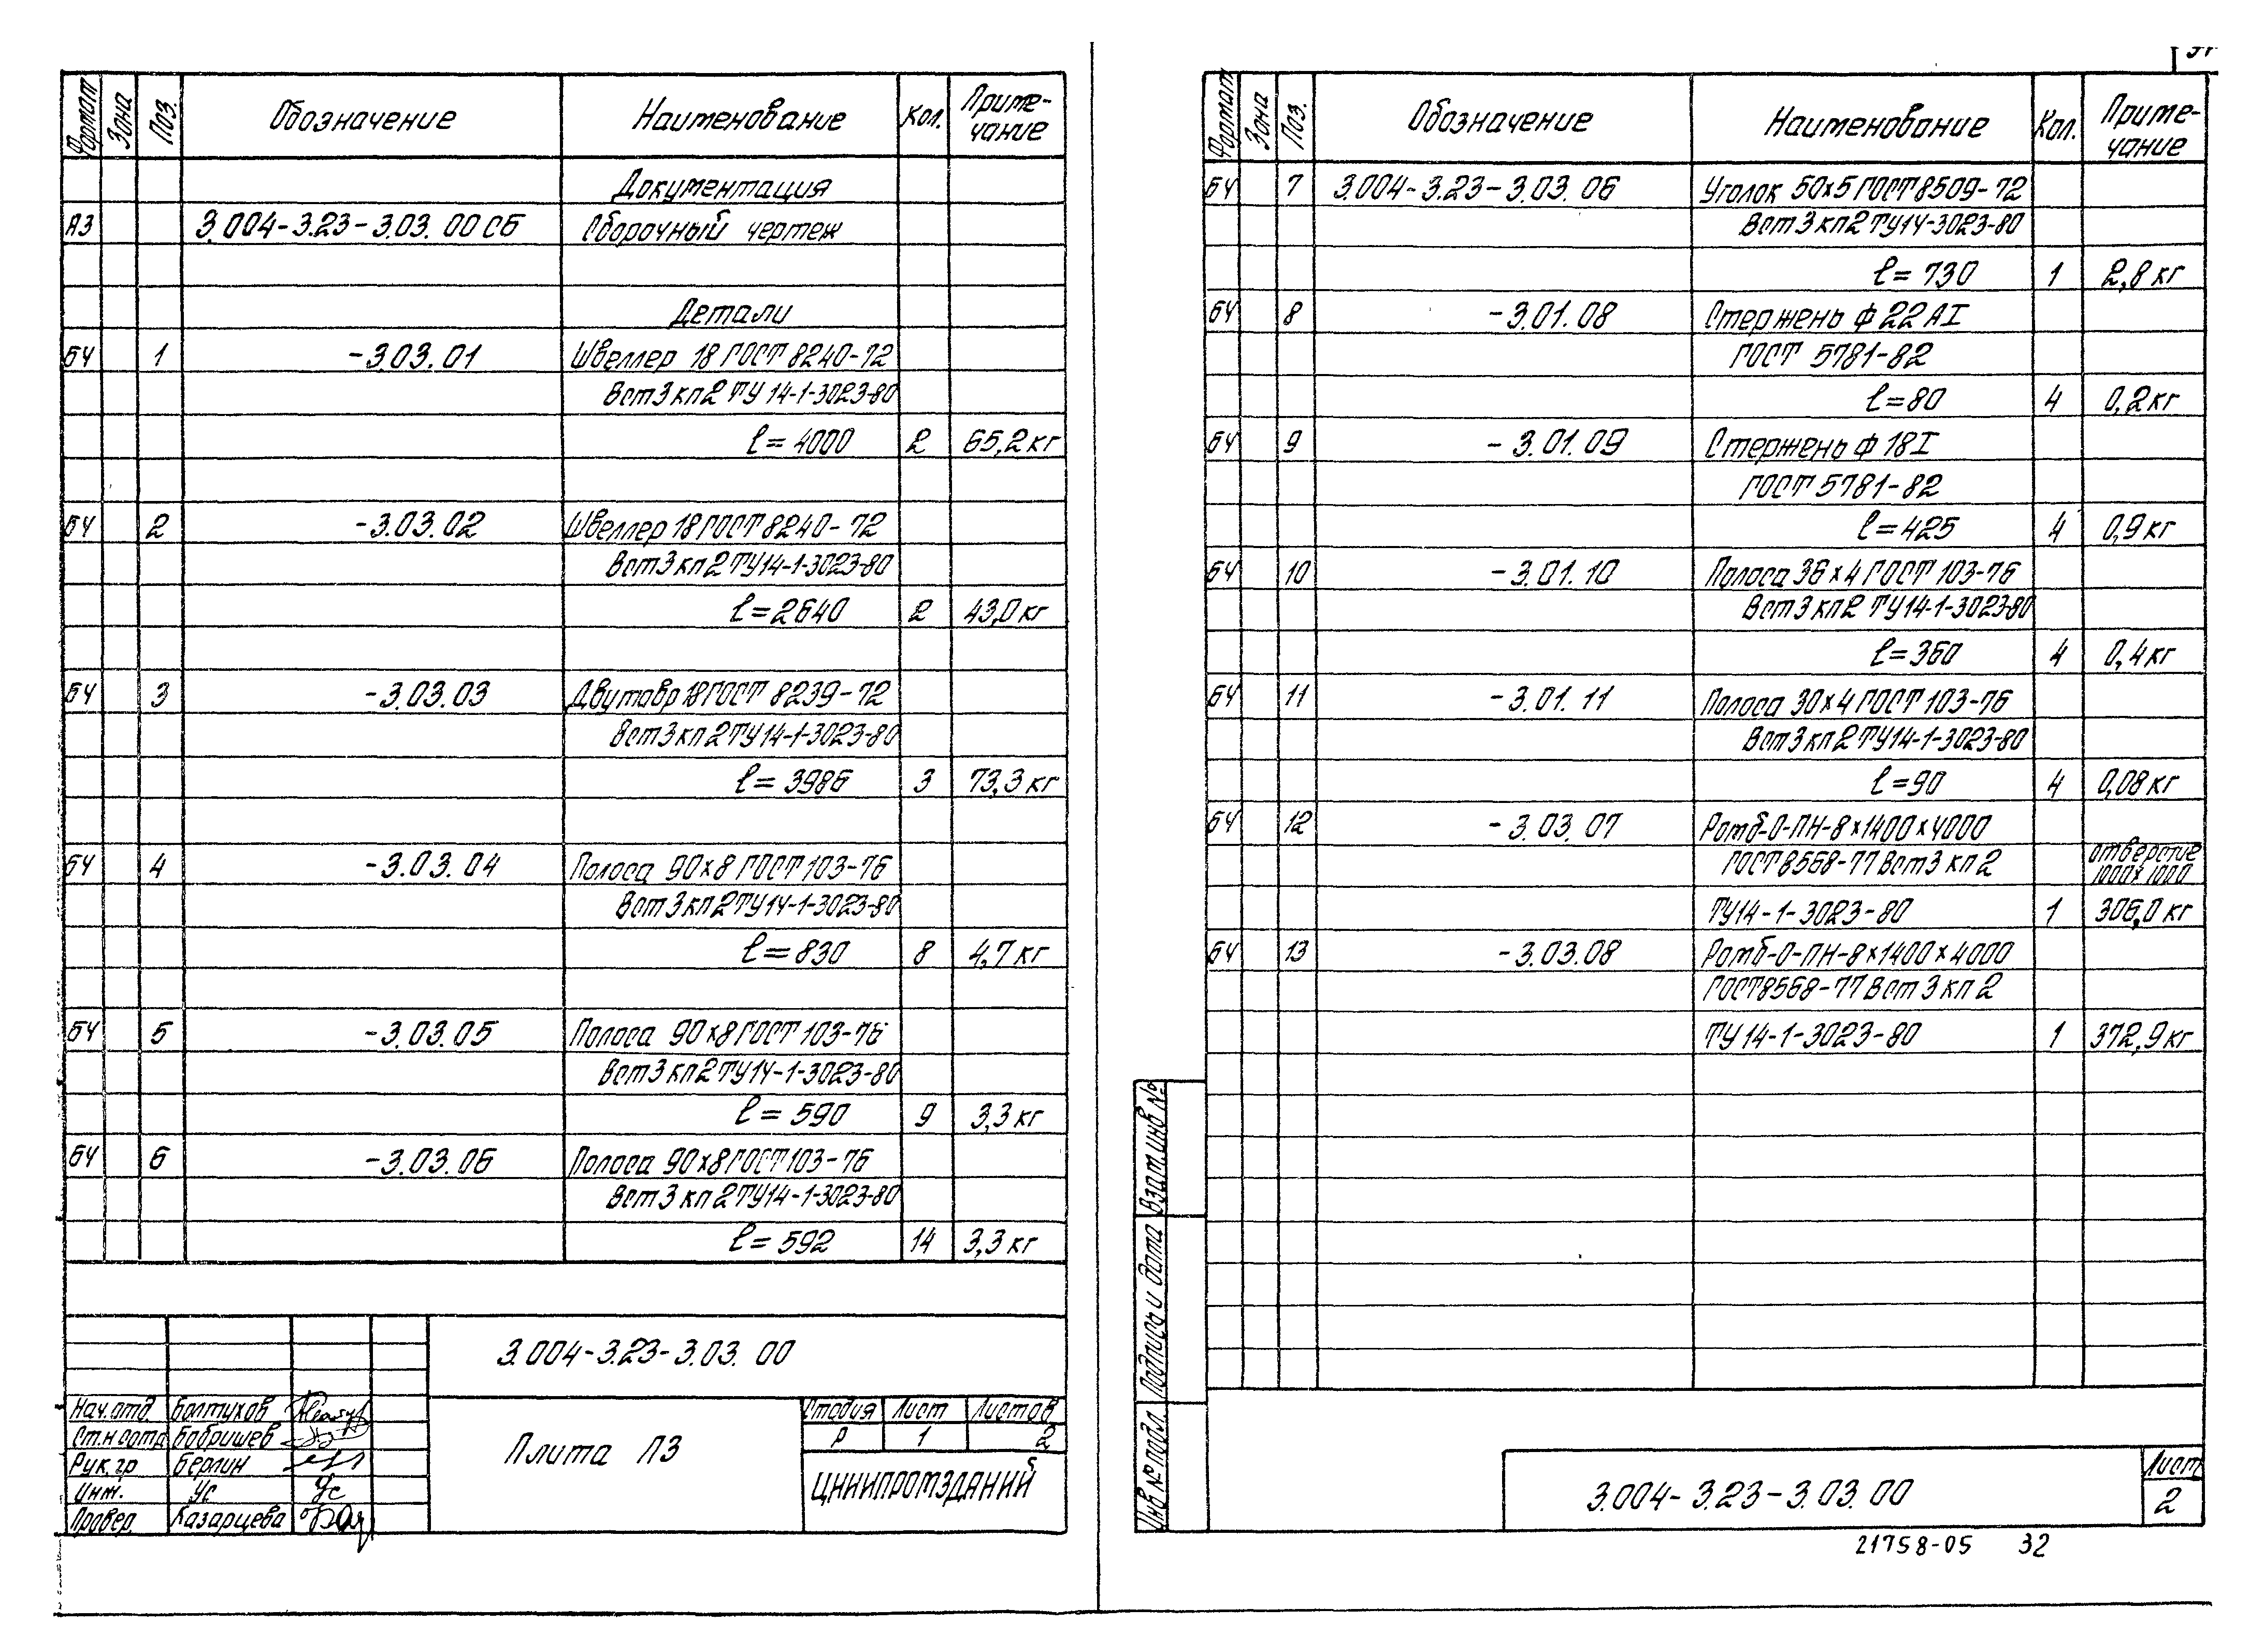 Формат Зона Поз. Обозначение Наименование Кол. Приме-
чание
Документация
А3 3.004-3.23-3.03.00 СБ Сборочный чертеж
Детали
БЧ 1 -3.03.01 Швеллер 18 ГОСТ 8240-72
Вст3кп2 ТУ 14-1-3023-80
l=4000 2 65,2 кг
БЧ 2 -3.03.02 Швеллер 18 ГОСТ 8240-72
Вст3кп2 ТУ14-1-3023-80
l=2640 2 43,0 кг
БЧ 3 -3.03.03 Двутавр 18 ГОСТ 8239-72
Вст3кп2 ТУ14-1-3023-80
l=3986 3 73,3 кг
БЧ 4 -3.03.04 Полоса 90х8 ГОСТ 103-76
Вст3кп2 ТУ14-1-3023-80
l=830 8 4,7 кг
БЧ 5 -3.03.05 Полоса 90х8 ГОСТ 103-76
Вст3кп2 ТУ14-1-3023-80
l=590 9 3,3 кг
БЧ 6 -3.03.06 Полоса 90х8 ГОСТ 103-76
Вст3кп2 ТУ14-1-3023-80
l=592 14 3,3 кг
3.004-3.23-3.03.00
Нач.отд. Болтухов
Ст.н.сотр. Бобришев
Рук.гр Берлин
Инж. Ус Ус
Провер. Казарцева
Плита П3
Стадия Лист Листов
Р 1 2
ЦНИИПРОМЗДАНИЙ
Формат Зона Поз. Обозначение Наименование Кол. Приме-
чание
БЧ 7 3.004-3.23-3.03.06 Уголок 50х5 ГОСТ 8509-72
Вст3кп2 ТУ14-3023-80
l=730 1 2,8 кг
БЧ 8 -3.01.08 Стержень ф22АI
ГОСТ 5781-82
l=80 4 0,2 кг
БЧ 9 -3.01.09 Стержень ф18I
ГОСТ 5781-82
l=425 4 0,9 кг
БЧ 10 -3.01.10 Полоса 36х4 ГОСТ 103-76
Вст3кп2 ТУ14-1-3023-80
l=360 4 0,4 кг
БЧ 11 -3.01.11 Полоса 30х4 ГОСТ 103-76
Вст3кп2 ТУ14-1-3023-80
l=90 4 0,08 кг
БЧ 12 -3.03.07 Ромб-О-ПН-8х1400х4000
ГОСТ 8568-77 Вст3кп2 отверстие
1000х1000
ТУ14-1-3023-80 1 306,0 кг
БЧ 13 -3.03.08 Ромб-О-ПН-8х1400х4000
ГОСТ 8568-77 Вст3кп2
ТУ14-1-3023-80 1 372,9 кг
Взам.инв №
Подпись и дата
Инв № подл.
3.004-3.23-3.03.00
Лист
2
21758-05 32